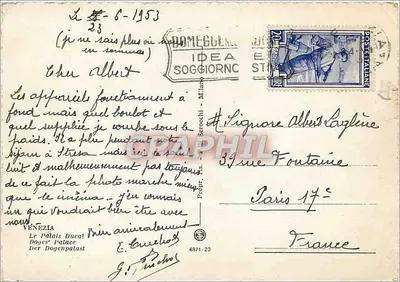 Le 23-6-1953
(je ne sais plus où nous
en sommes)
Cher Albert
Les appareils fonctionnent à
fond mais quel boulot et
quel supplice je courbe sous le
poids. Il a plu pendant notre
séjour à Stresa
et malheureusement pas toujours
de ce fait la photo marche mieux
que le cinéma - j'en connais
un qui voudrait bien être avec
nous.
Bien amicalement
VENEZIA
Le Palais Ducal
Doges' Palace
Der Dogenpalast
4831-23
Milano
IDEA
SOGGIORNO
POSTE ITALIANE
Signore Albert
39 rue Fontaine
Paris 17e
France
CPAPHIL